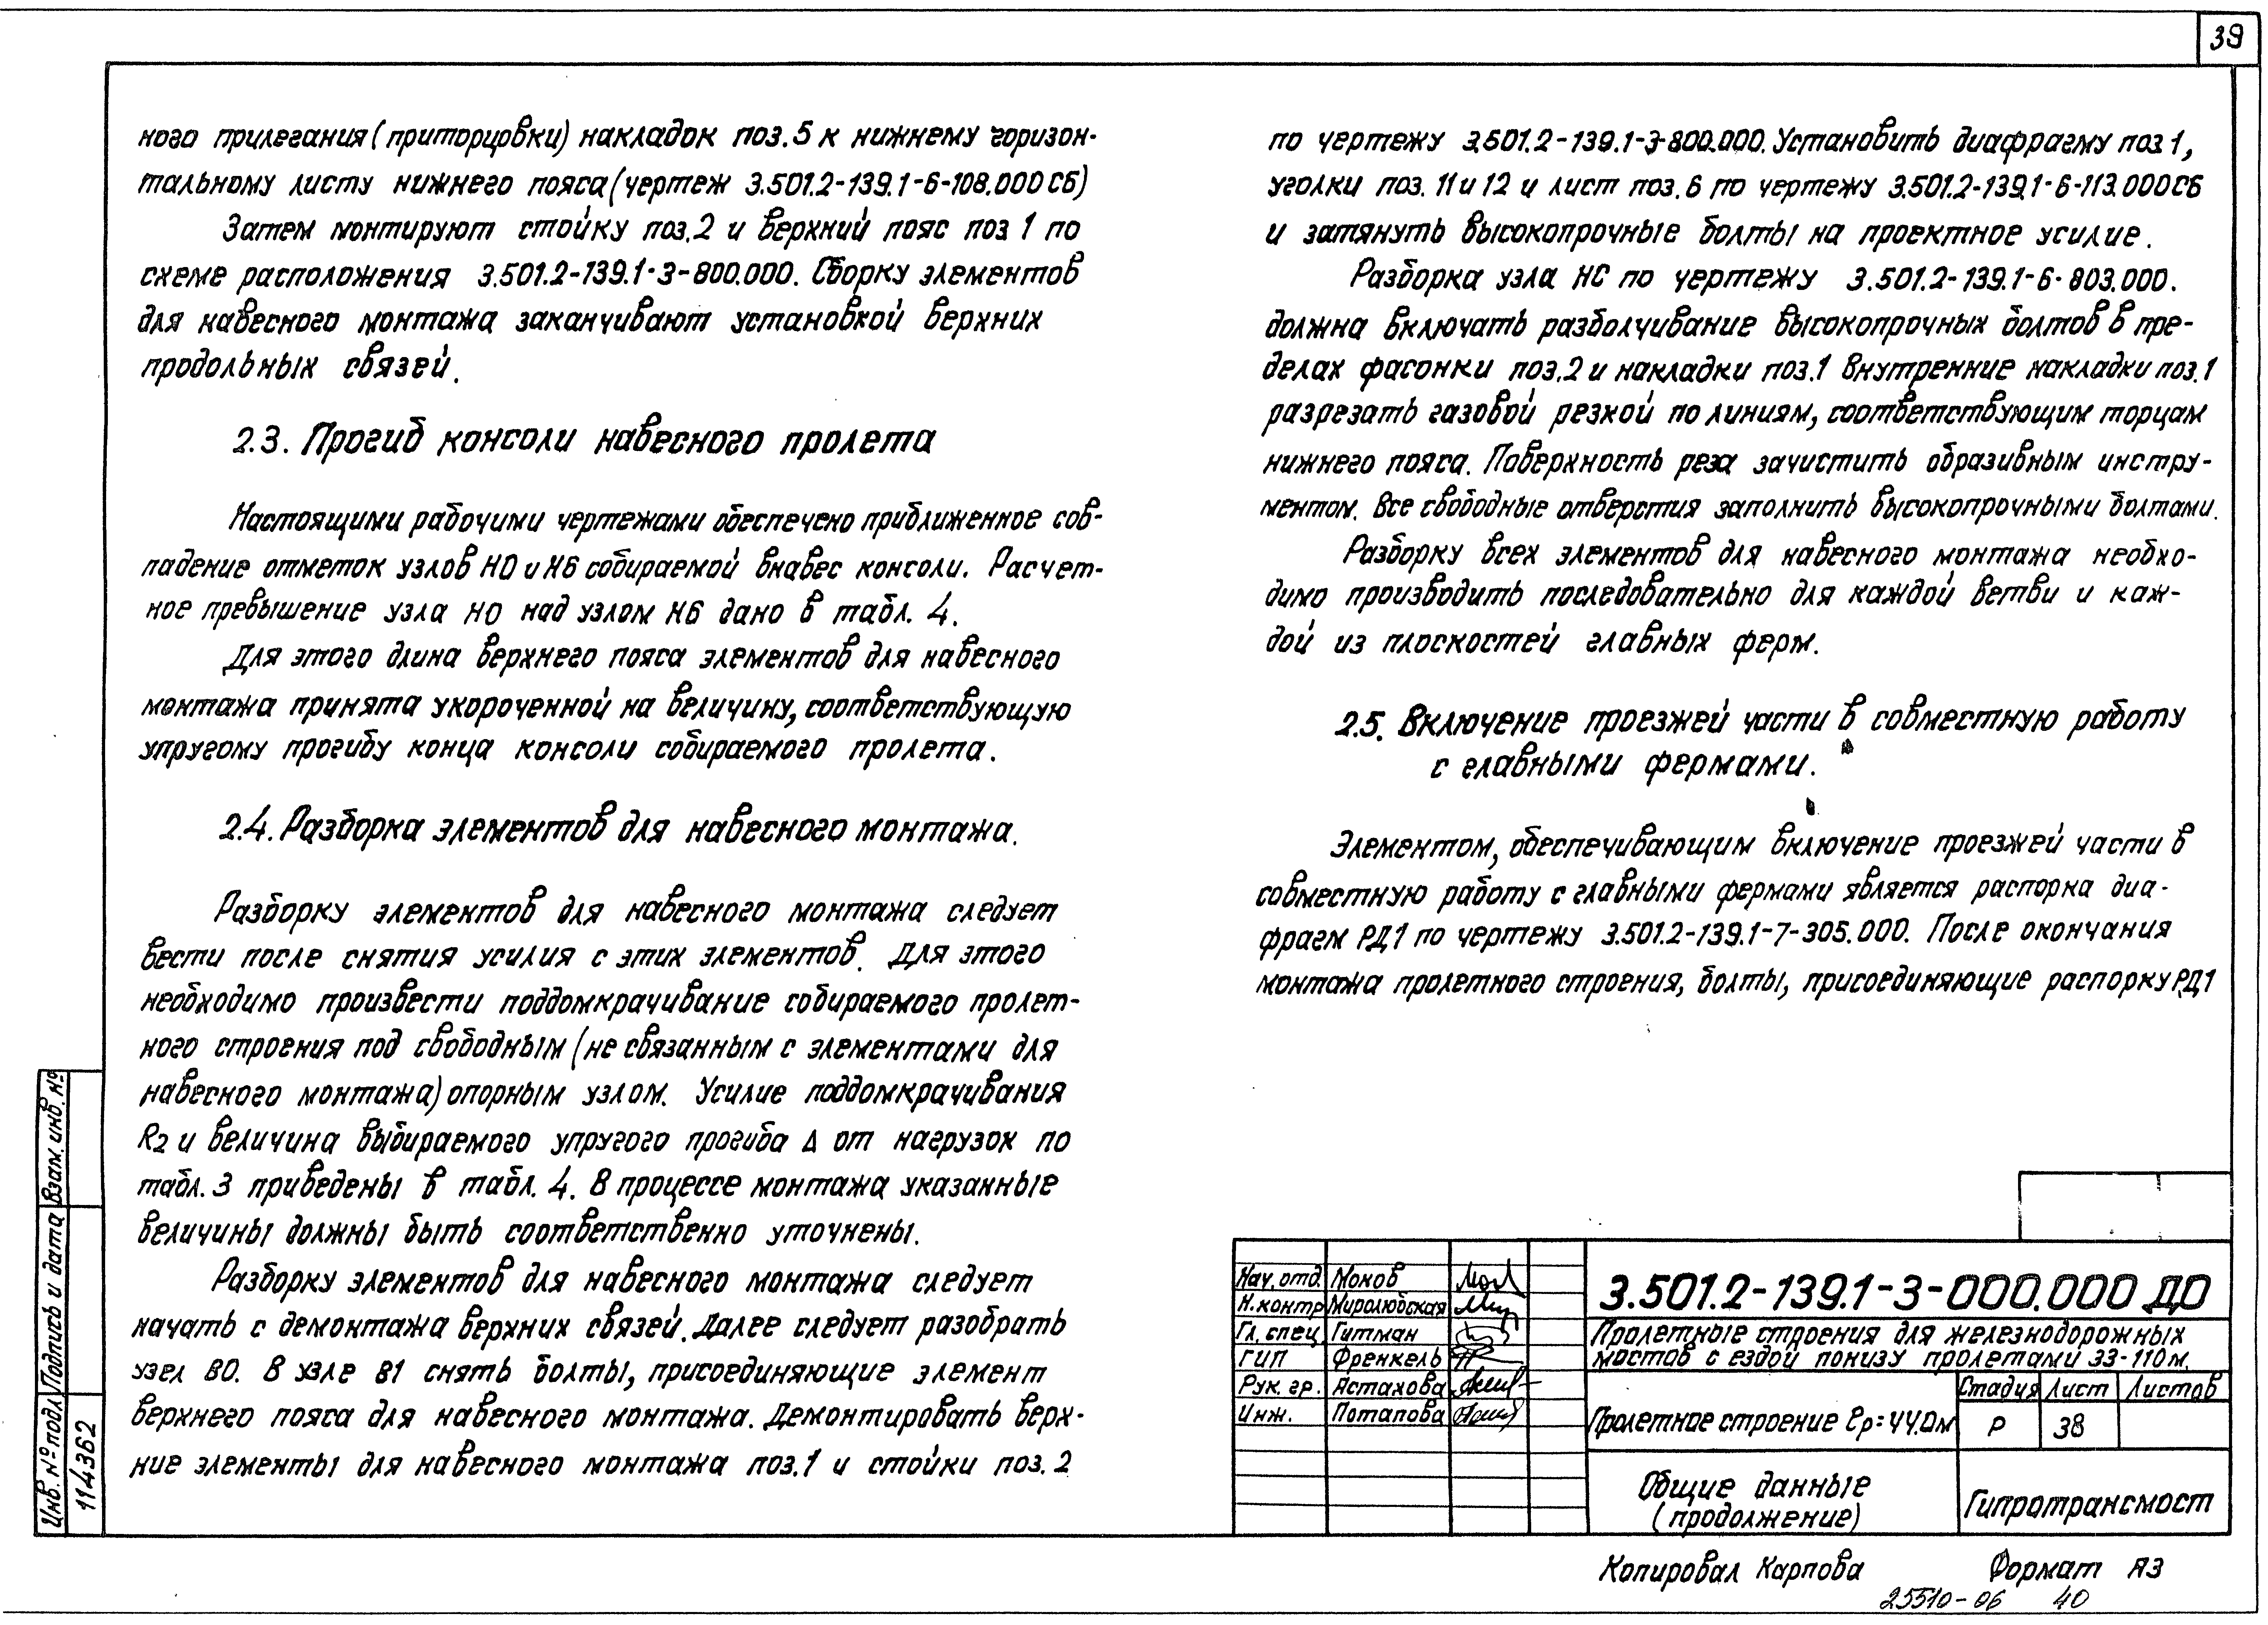 39
ного прилегания (приторцовки) накладок поз. 5 к нижнему горизон-
тальному листу нижнего пояса (чертеж 3.501.2-139.1-6-108.000СБ)
Затем монтируют стойку поз. 2 и верхний пояс поз 1 по
схеме расположения 3.501.2-139.1-3-800.000. Сборку элементов
для навесного монтажа заканчивают установкой верхних
продольных связей.
2.3. Прогиб консоли навесного пролета
Настоящими рабочими чертежами обеспечено приближенное сов-
падение отметок узлов Н0 и Н6 собираемой внавес консоли. Расчет-
ное превышение узла Н0 над узлом Н6 дано в табл. 4.
Для этого длина верхнего пояса элементов для навесного
монтажа принята укороченной на величину, соответствующую
упругому прогибу конца консоли собираемого пролета.
2.4. Разборка элементов для навесного монтажа.
Разборку элементов для навесного монтажа следует
вести после снятия усилия с этих элементов. Для этого
необходимо произвести поддомкрачивание собираемого пролет-
ного строения под свободным (не связанным с элементами для
навесного монтажа) опорным узлом. Усилие поддомкрачивания
R2 и величина выбираемого упругого прогиба Δ от нагрузок по
табл. 3 приведены в табл. 4. В процессе монтажа указанные
величины должны быть соответственно уточнены.
Разборку элементов для навесного монтажа следует
начать с демонтажа верхних связей. Далее следует разобрать
узел В0. В узле В1 снять болты, присоединяющие элемент
верхнего пояса для навесного монтажа. Демонтировать верх-
ние элементы для навесного монтажа поз. 1 и стойки поз. 2
по чертежу 3.501.2-139.1-3-800.000. Установить диафрагму поз 1,
уголки поз. 11 и 12 и лист поз. 6 по чертежу 3.501.2-139.1-6-113.000СБ
и затянуть высокопрочные болты на проектное усилие.
Разборка узла НС по чертежу 3.501.2-139.1-6-803.000.
должна включать разболчивание высокопрочных болтов в пре-
делах фасонки поз. 2 и накладки поз. 1 Внутренние накладки поз. 1
разрезать газовой резкой по линиям, соответствующим торцам
нижнего пояса. Поверхность реза зачистить образивным инстру-
ментом. Все свободные отверстия заполнить высокопрочными болтами.
Разборку всех элементов для навесного монтажа необхо-
димо производить последовательно для каждой ветви и каж-
дой из плоскостей главных ферм.
2.5. Включение проезжей части в совместную работу
с главными фермами.
Элементом, обеспечивающим включение проезжей части в
совместную работу с главными фермами является распорка диа-
фрагм РД1 по чертежу 3.501.2-139.1-7-305.000. После окончания
монтажа пролетного строения, болты, присоединяющие распорку РД1
Инв. № подл. Подпись и дата Взам. инв. №
114362
Нач. отд. Монов
Н. контр Миролюбская
Гл. спец. Гитман
ГИП Френкель
Рук. гр. Астахова
Инж. Потапова
3.501.2-139.1-3-000.000 ДО
Пролетные строения для железнодорожных
мостов с ездой понизу пролетами 33-110 м.
Пролетное строение ℓр=44.0м
Стадия Лист Листов
Р 38
Общие данные
(продолжение)
Гипротрансмост
Копировал Карпова Формат А3
25510-06 40